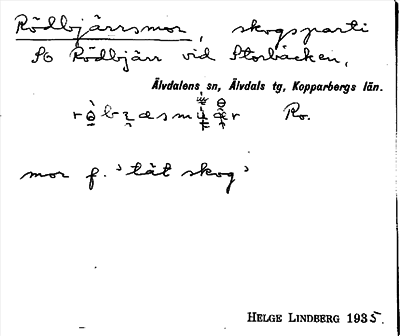 Rödbjärrsmor, skogsparti
SO Rödbjärr vid Storbäcken,
Älvdalens sn, Älvdals tg, Kopparbergs län.
Ro.
mor f. 'tät skog'
HELGE LINDBERG 1935.